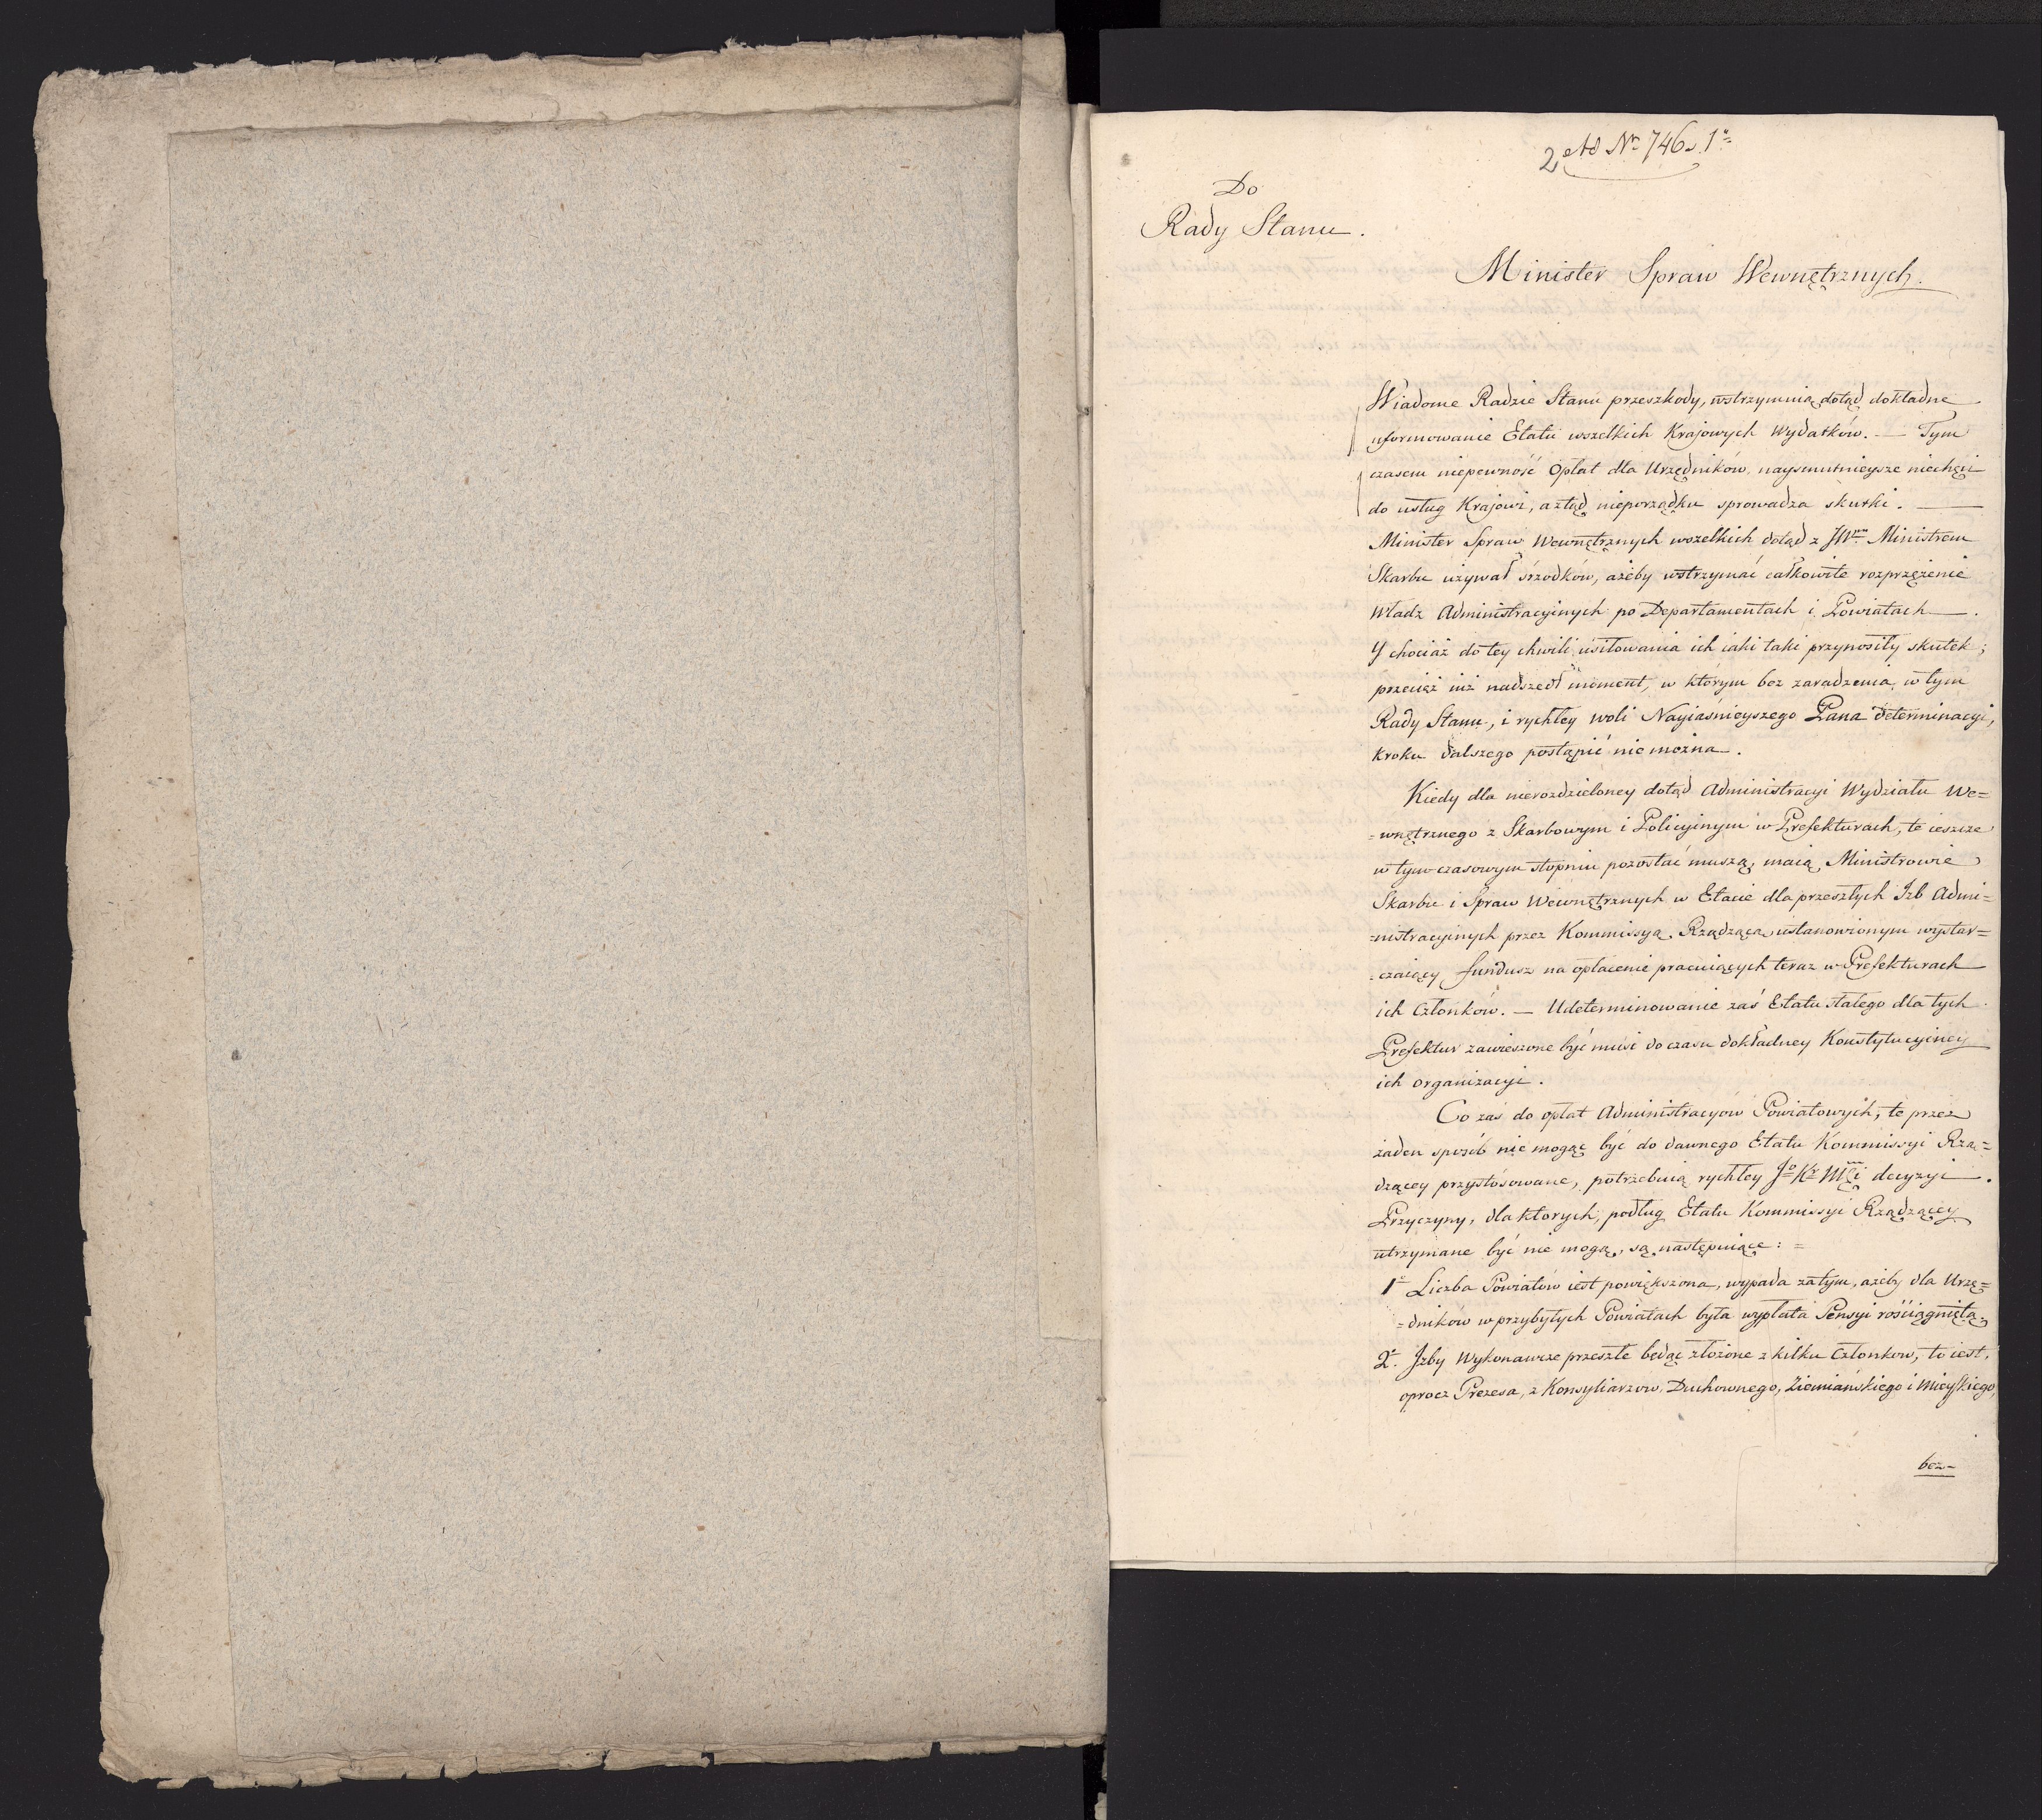 2, Ad Nr 746. 1o
Do
Rady Stanu.
Minister Spraw Wewnętrznych.
Wiadome Radzie Stanu przeszkody, wstrzymuią dotąd dokładne
uformowanie Etatu wszelkich Krajowych Wydatków. — Tym
czasem niepewność Opłat dla Urzędników, naysmutnieysze niechęci
do usług Krajowi, a ztąd nieporządku sprowadza skutki. —
Minister Spraw Wewnętrznych wszelkich dotąd z JWnym Ministrem
Skarbu używał śrzodków, ażeby wstrzymać całkowite rozprzężenie
Władz Administracyjnych po Departamentach i Powiatach.
Y chociaż do tey chwili usiłowania ich iaki taki przynosiły skutek;
przecięż iuż nadszedł moment, w którym bez zaradzenia w tym
Rady Stanu, i rychłey woli Nayiaśnieyszego Pana determinacyi,
kroku dalszego postąpić nie można.
Kiedy dla nierozdzieloney dotąd Administracyi Wydziału We=
=wnętrznego z Skarbowym i Policyinym w Prefekturach, te ieszcze
w tymczasowym stopniu pozostać muszą, maią Ministrowie
Skarbu i Spraw Wewnętrznych w Etacie dla przeszłych Izb Admi=
=nistracyinych przez Kommissyą Rządzącą ustanowionym wystar=
=czaiący fundusz na opłacenie pracuiących teraz w Prefekturach
ich Członków. — Udeterminowanie zaś Etatu stałego dla tych
Prefektur zawieszone być musi do czasu dokładney Konstytucyiney
ich organizacyi.
Co zaś do opłat Administracyów Powiatowych, te przez
żaden sposób nie mogąc być do dawnego Etatu Kommissyi Rzą=
dzącey przystósowane, potrzebuią rychłey Jo Kr Mci decyzyi.
Przyczyny, dla ktorych, podług Etatu Kommissyi Rządzącey
utrzymane być nie mogą, są następuiące: =
1o Liczba Powiatów iest powiększona, wypada zatym, ażeby dla Urzę=
=dników w przybyłych Powiatach była wypłata Pensyi rościągnięta.
2o. Jzby Wykonawcze przeszłe będąc złożone z kilku Członkow, to iest,
oprocz Prezesa, z Konsyliarzow, Duchownego, Ziemiańskiego i Mieyskiego,
bez=